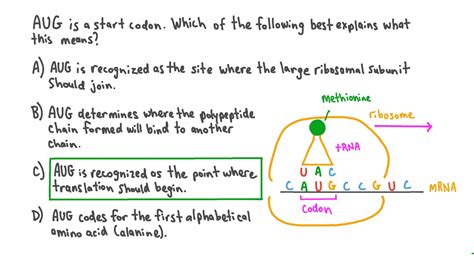 AUG is a start codon. Which of the following best explains what
this means?
A) AUG is recognized as the site where the large ribosomal subunit
should join.
B) AUG determines where the polypeptide
chain formed will bind to another
chain.
C) AUG is recognized as the point where
translation should begin.
D) AUG codes for the first alphabetical
amino acid (alanine).
Methionine
ribosome
tRNA
U A C
C A U G C C G U C mRNA
Codon